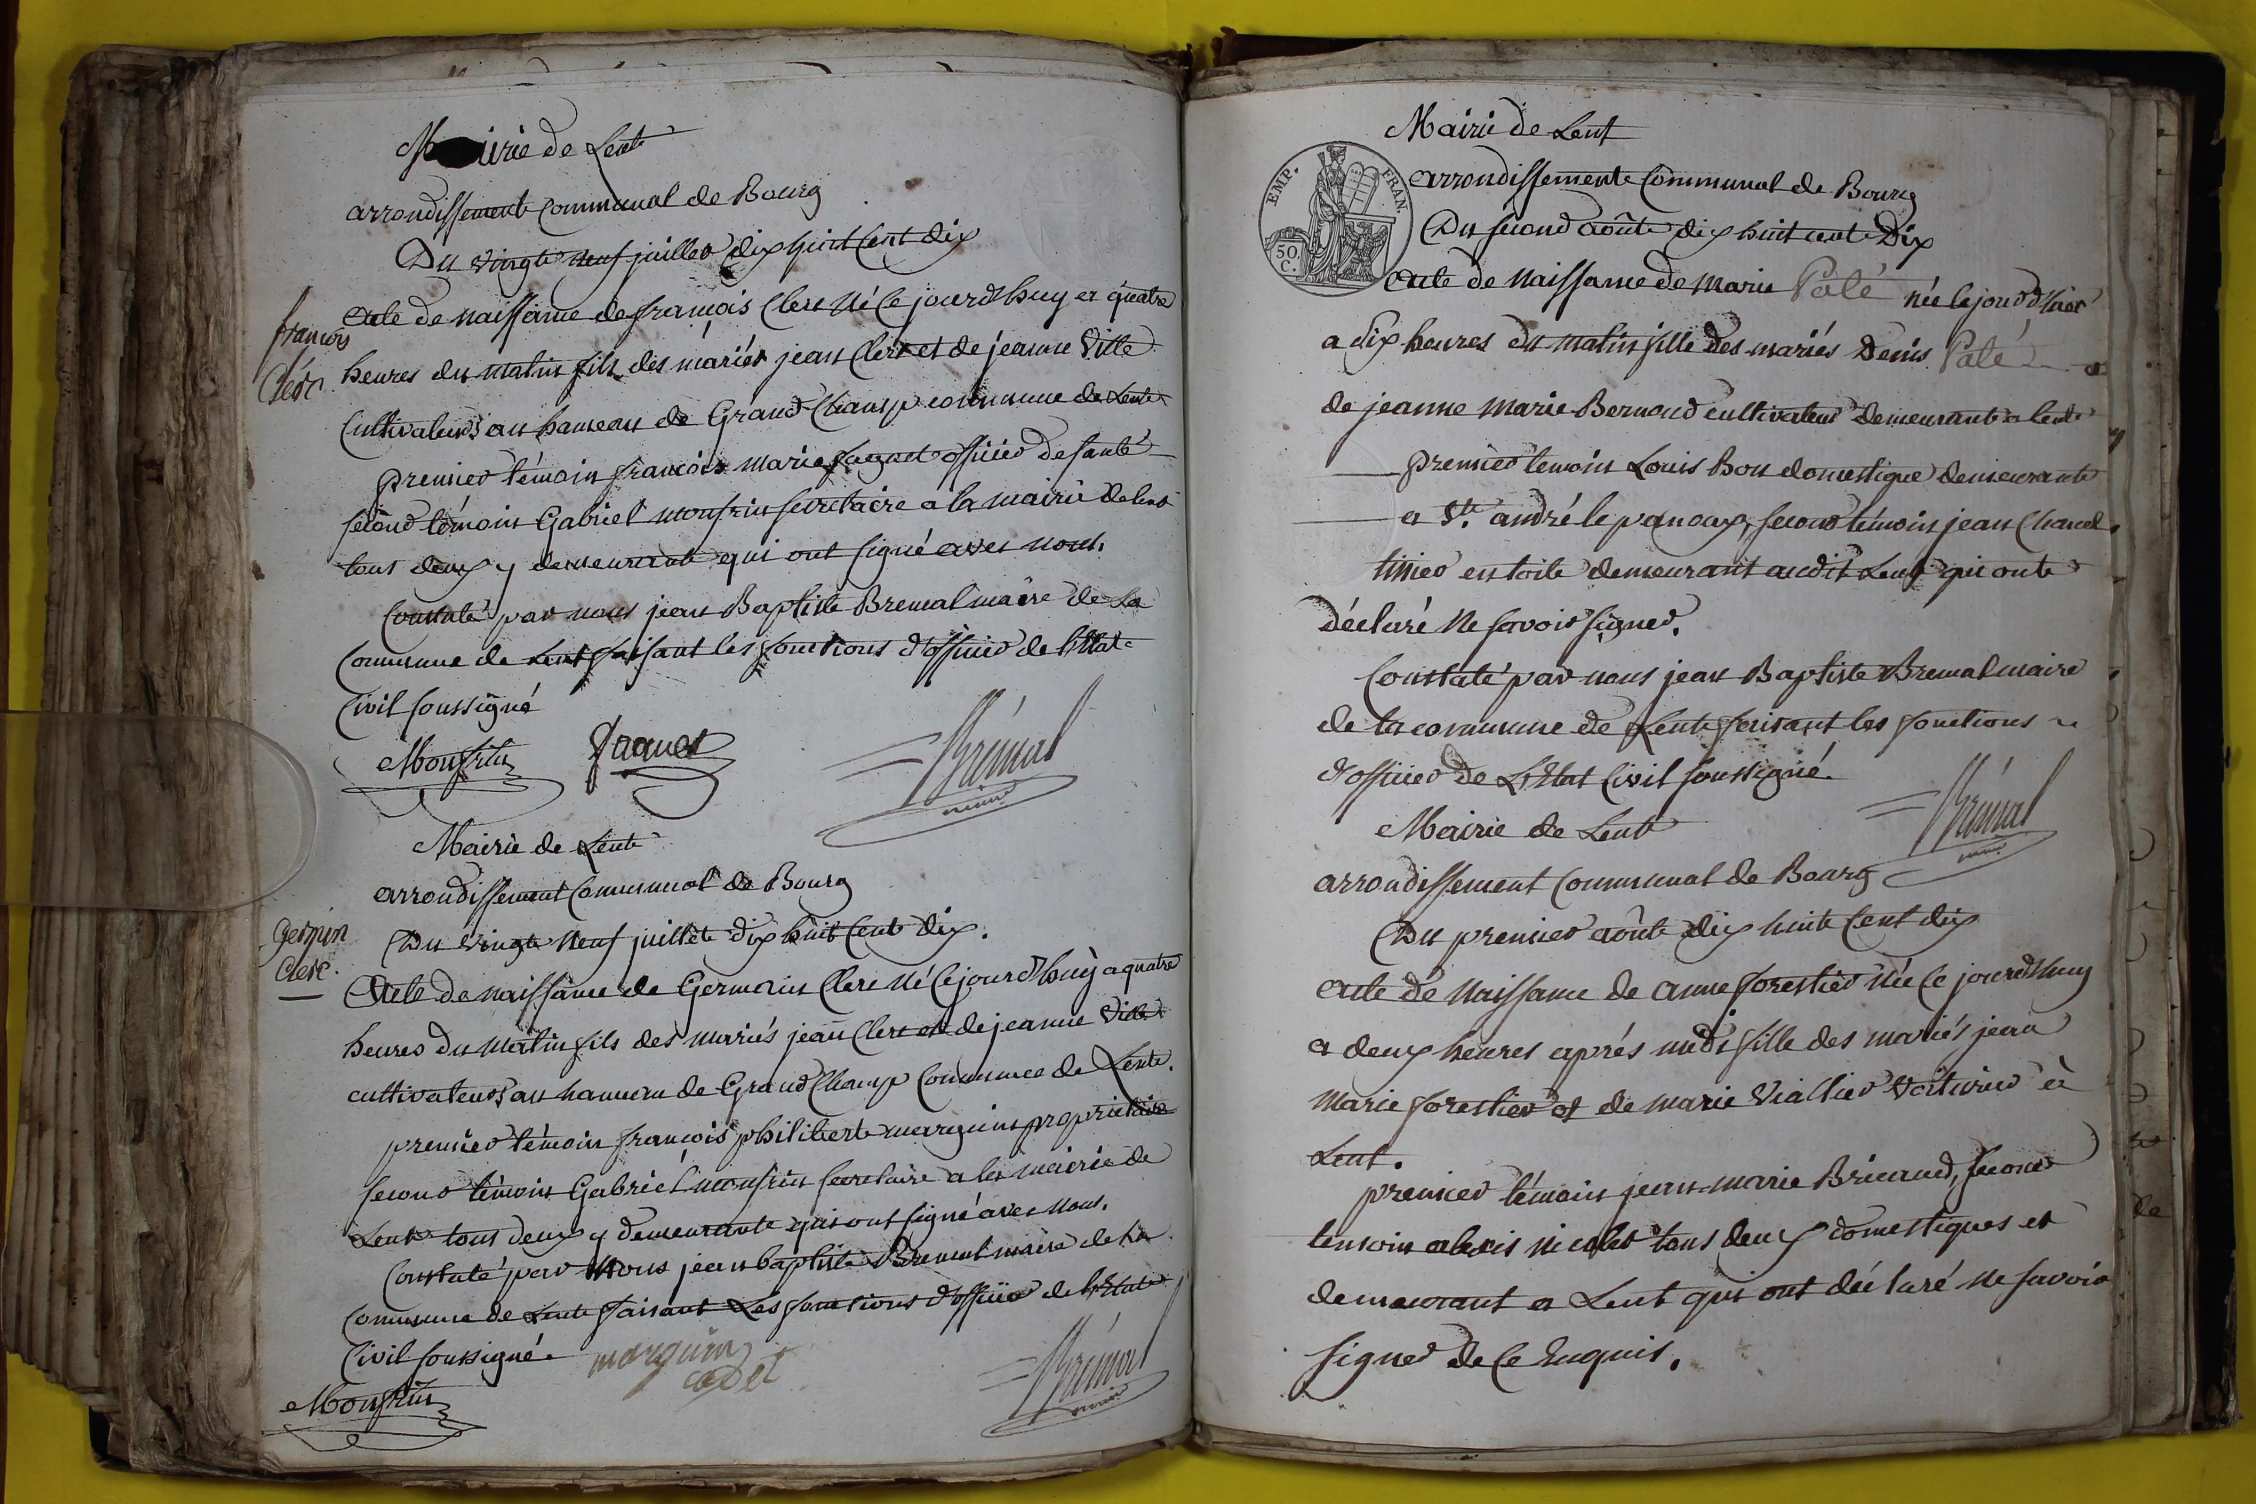 Mairie de Lent
arrondissement Communal de Bourg
Du vingt neuf juillet dix huit Cent dix
acte de naissance de françois Clerc né ce jourd'huy a quatre
françois
Clerc
heures du matin fils des mariés jean Clerc et de jeanne Ville
Cultivateurs au hameau de Grand Champ commune de Lent
premier témoin françois marie officier de santé
second témoin Gabriel monfrin secretaire a la mairie de lent
tous deux y demeurants qui ont signé avec nous.
Constaté par nous jean Baptiste Bremal maire de la
Commune de Lent faisant les fonctions d'officier de l'Etat
Civil soussigné
Monfrin
Brémal
maire
Mairie de Lent
arrondissement Communal de Bourg
Germin
Clerc.
Du vingt neuf juillet dix huit Cent dix.
Acte de naissance de Germain Clerc né ce jourd'huy a quatre
heures du matin fils des mariés jean Clerc et de jeanne Ville
cultivateurs au hameau de Grand Champ Commune de Lent.
premier témoin françois philibert marguin proprietaire
second témoin Gabriel monfrin secretaire a la mairie de
Lent tous deux y demeurants qui ont signé avec nous.
Constaté par Nous jean baptiste Bremal maire de la
Commune de Lent faisant Les fonctions d'officier de l'Etat
Civil soussigné.
marguin
cadet
Monfrin
Brémal
maire
Mairie de Lent
EMP. FRAN.
50.
C.
arrondissement Communal de Bourg
Du second août dix huit cent Dix
acte de naissance de marie Palé née le jour d'hier
a dix heures du matin fille des mariés Denis Palé et
de jeanne marie Bernoud cultivateurs demeurants a lent
premier temoin Louis Bon domestique demeurant
a St. andré le panoux, second témoin jean Charvel
tissier en toile demeurant audit Lent qui ont
déclaré ne savoir signer.
Constaté par nous jean Baptiste Bremal maire
de la commune de Lent faisant les fonctions
d'officier de L'Etat Civil soussigné.
Brémal
maire
Mairie de Lent
arrondissement Communal de Bourg
Du premier août dix huit Cent dix
acte de naissance de anne forestier née ce jourd'huy
a deux heures aprés midi fille des mariés jean
marie forestier et de marie Viallier voiturier à
Lent.
premier témoin jean-marie Bricaud, second
temoin alexis nicolet tous deux domestiques et
demeurant a Lent qui ont déclaré ne savoir
signer de ce Enquis.